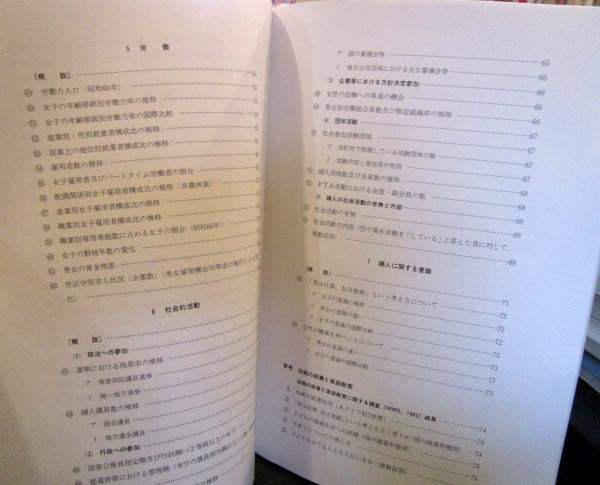 5 労働
〔概説〕 51
㊾ 労働力人口（昭和60年） 52
㊿ 女子の年齢階級別労働力率の推移
女子の年齢階級別労働力率の国際比較
産業別・性別就業者構成比の推移
従業上の地位別就業者構成比の推移
雇用者数の推移
女子雇用者及びパートタイム労働者の割合
配偶関係別女子雇用者構成比の推移（非農林業）
産業別女子雇用者構成比の推移
職業別女子雇用者構成比の推移
職業別雇用者総数に占める女子の割合（昭和60年）
女子の勤続年数の変化
男女の賃金格差
性区分別求人状況（企業数）（男女雇用機会均等法の施行による変
化）
6 社会的活動
〔概説〕
(1) 政治への参加
選挙における投票率の推移
ア 衆参両院議員選挙
イ 統一地方選挙
婦人議員数の推移
ア 国会議員
イ 地方議会議員
(2) 行政への参加
国家公務員指定職及び行政職㈠2等級以上の女子
都道府県における管理職（本庁の課長相当職以上）
ア 国の審議会等 65
イ 地方公共団体における主な審議会等 65
(3) 企業等における方針決定参加
女性の役職への昇進の機会 66
男女別労働組合員数及び推定組織率の推移 66
(4) 団体活動
社会参加活動団体 67
ア 市町村で把握している活動団体の数 67
イ 活動内容と参加者の性別 67
婦人団体数及び会員数の推移 68
PTA活動における会長・副会長の数 68
(5) 婦人の社会活動の有無と内容
社会活動の有無 69
社会活動の内容（で現在活動を「している」と答えた者に対して、
複数回答） 69
7 婦人に関する意識
〔概説〕 71
「男は仕事、女は家庭」という考え方について 72
ア 女子の意識の推移 72
イ 男女の意識の違い 72
ウ 女子の意識の国際比較 72
女性が職業を持つことについて 73
ア 男女の意識の違い 73
イ 女子の意識の国際比較 73
参考 母親の就業と家庭教育
母親の就業と家庭教育に関する調査（WMS, 1985）結果
① 母親の就業状況 74
② 「男は仕事、女は家庭」という考えをどう思うか（母の就業形態別） 74
③ 子どもの家庭生活への評価（母の就業形態別） 75
④ 子育てについての感じ方 75